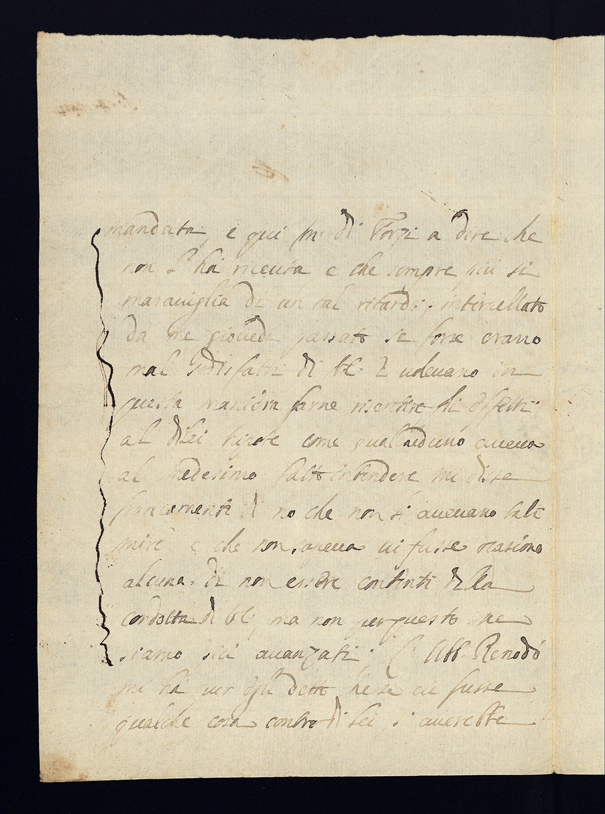 mandata, e qui M. di Torsi a dire che
non l'ha riceuta e che sempre più si
maraviglia di un tal ritardo; interpellato
da me giovedì passato se forse erano
mal sodisfatti di V.S. e volevano in
questa maniera farne risentire gli effetti
al di lei nipote come qualcheduno aueua
al medesimo fatto intendere mi disse
francamente di no che non si aueuano tali
mire e che non sapeua ui fusse occasione
alcuna di non essere contenti della
condotta di V.S. ma non per questo ne
siamo più auanzati. L'Abb. Renodò
mi ha pur egli detto che se ui fusse
qualche cosa contro di Lei s'auerebbe